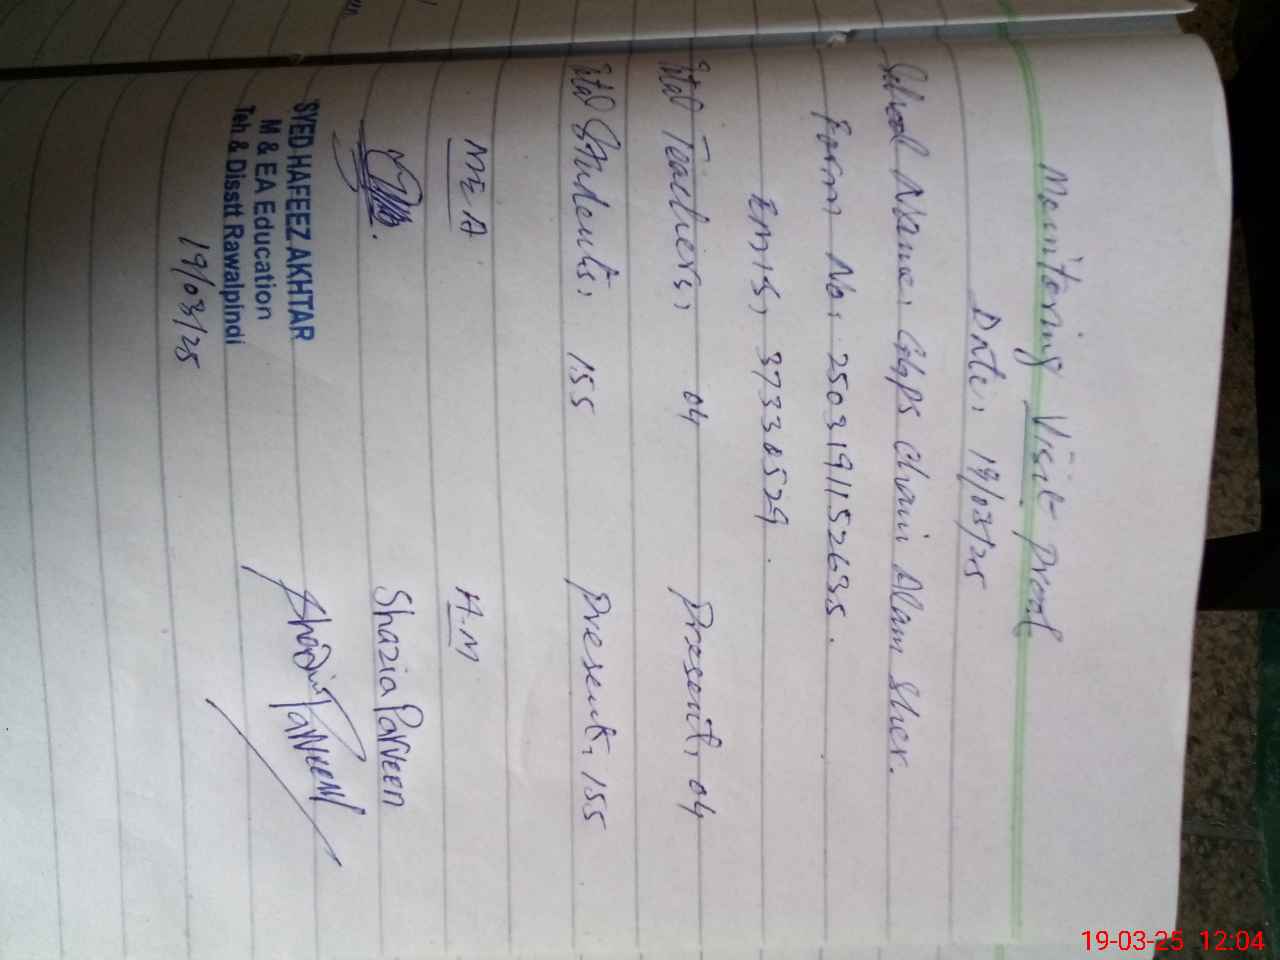 Monitoring Visit Proof
Date: 19/03/25
School Name: GGPS Chani Alam Sher.
Form No: 2503191152635.
EMIS: 37330529.
Total Teachers: 04 Present: 04
Total Students: 155 Present: 155
MEA A.M
Shazia Parveen
Shazia Parveen
SYED HAFEEZ AKHTAR
M & EA Education
Teh & Disstt Rawalpindi
19/03/25
19-03-25 12:04